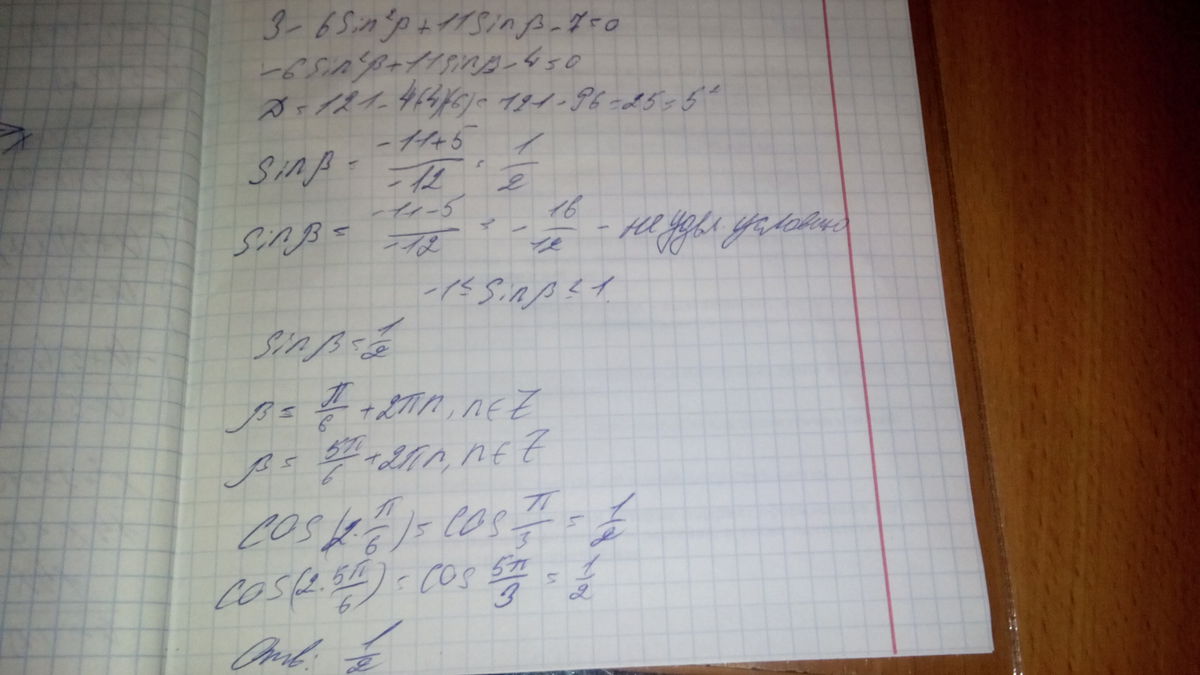 3 - 6Sin²β + 11Sinβ - 7 = 0
-6Sin²β + 11Sinβ - 4 = 0
D = 121 - 4(4)(6) = 121 - 96 = 25 = 5²
Sinβ = (-11+5)/(-12) = 1/2
Sinβ = (-11-5)/(-12) = -16/12 - не удвл. условию
-1 ≤ Sinβ ≤ 1.
Sinβ = 1/2
β = π/6 + 2πn, n ∈ Z
β = 5π/6 + 2πn, n ∈ Z
COS(2·π/6) = COS π/3 = 1/2
COS(2·5π/6) = COS 5π/3 = 1/2
Отв.: 1/2